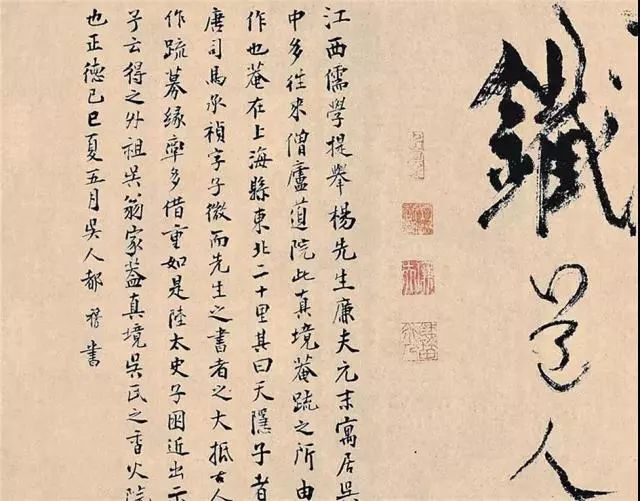 鐵道人
江西儒學提舉楊先生廉夫元末寓居吳
中多往来僧廬道院此真境菴疏之所由
作也菴在上海縣東北二十里其曰天隱子者
唐司馬承禎字子微而先生之書者之大抵古人
作疏募緣率多借重如是陸太史子困近出示
子云得之外祖吳翁家葢真境吳氏之香火院
也正德己巳夏五月吳人都穆書